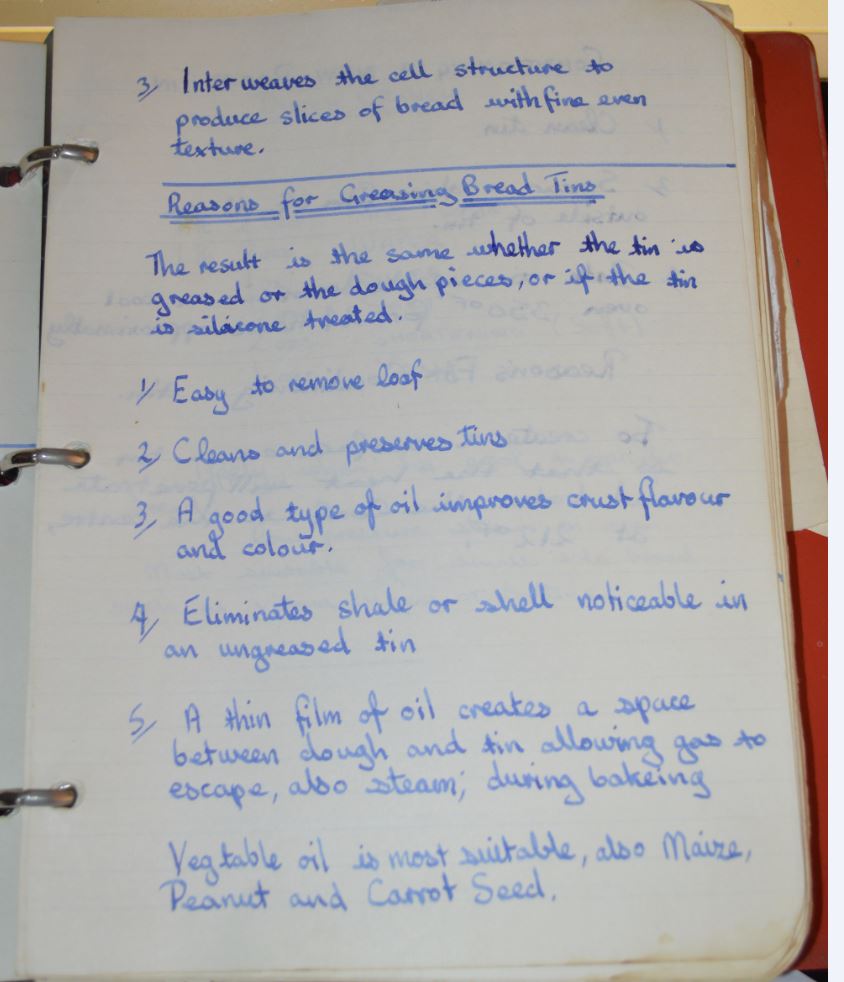 3/ Inter weaves the cell structure to
produce slices of bread with fine even
texture.
Reasons for Greasing Bread Tins
The result is the same whether the tin is
greased or the dough pieces, or if the tin
is silicone treated.
1/ Easy to remove loaf
2/ Cleans and preserves tins
3/ A good type of oil improves crust flavour
and colour.
4/ Eliminates shale or shell noticeable in
an ungreased tin
5/ A thin film of oil creates a space
between dough and tin allowing gas to
escape, also steam; during bakeing
Vegtable oil is most suitable, also Maize,
Peanut and Carrot Seed.